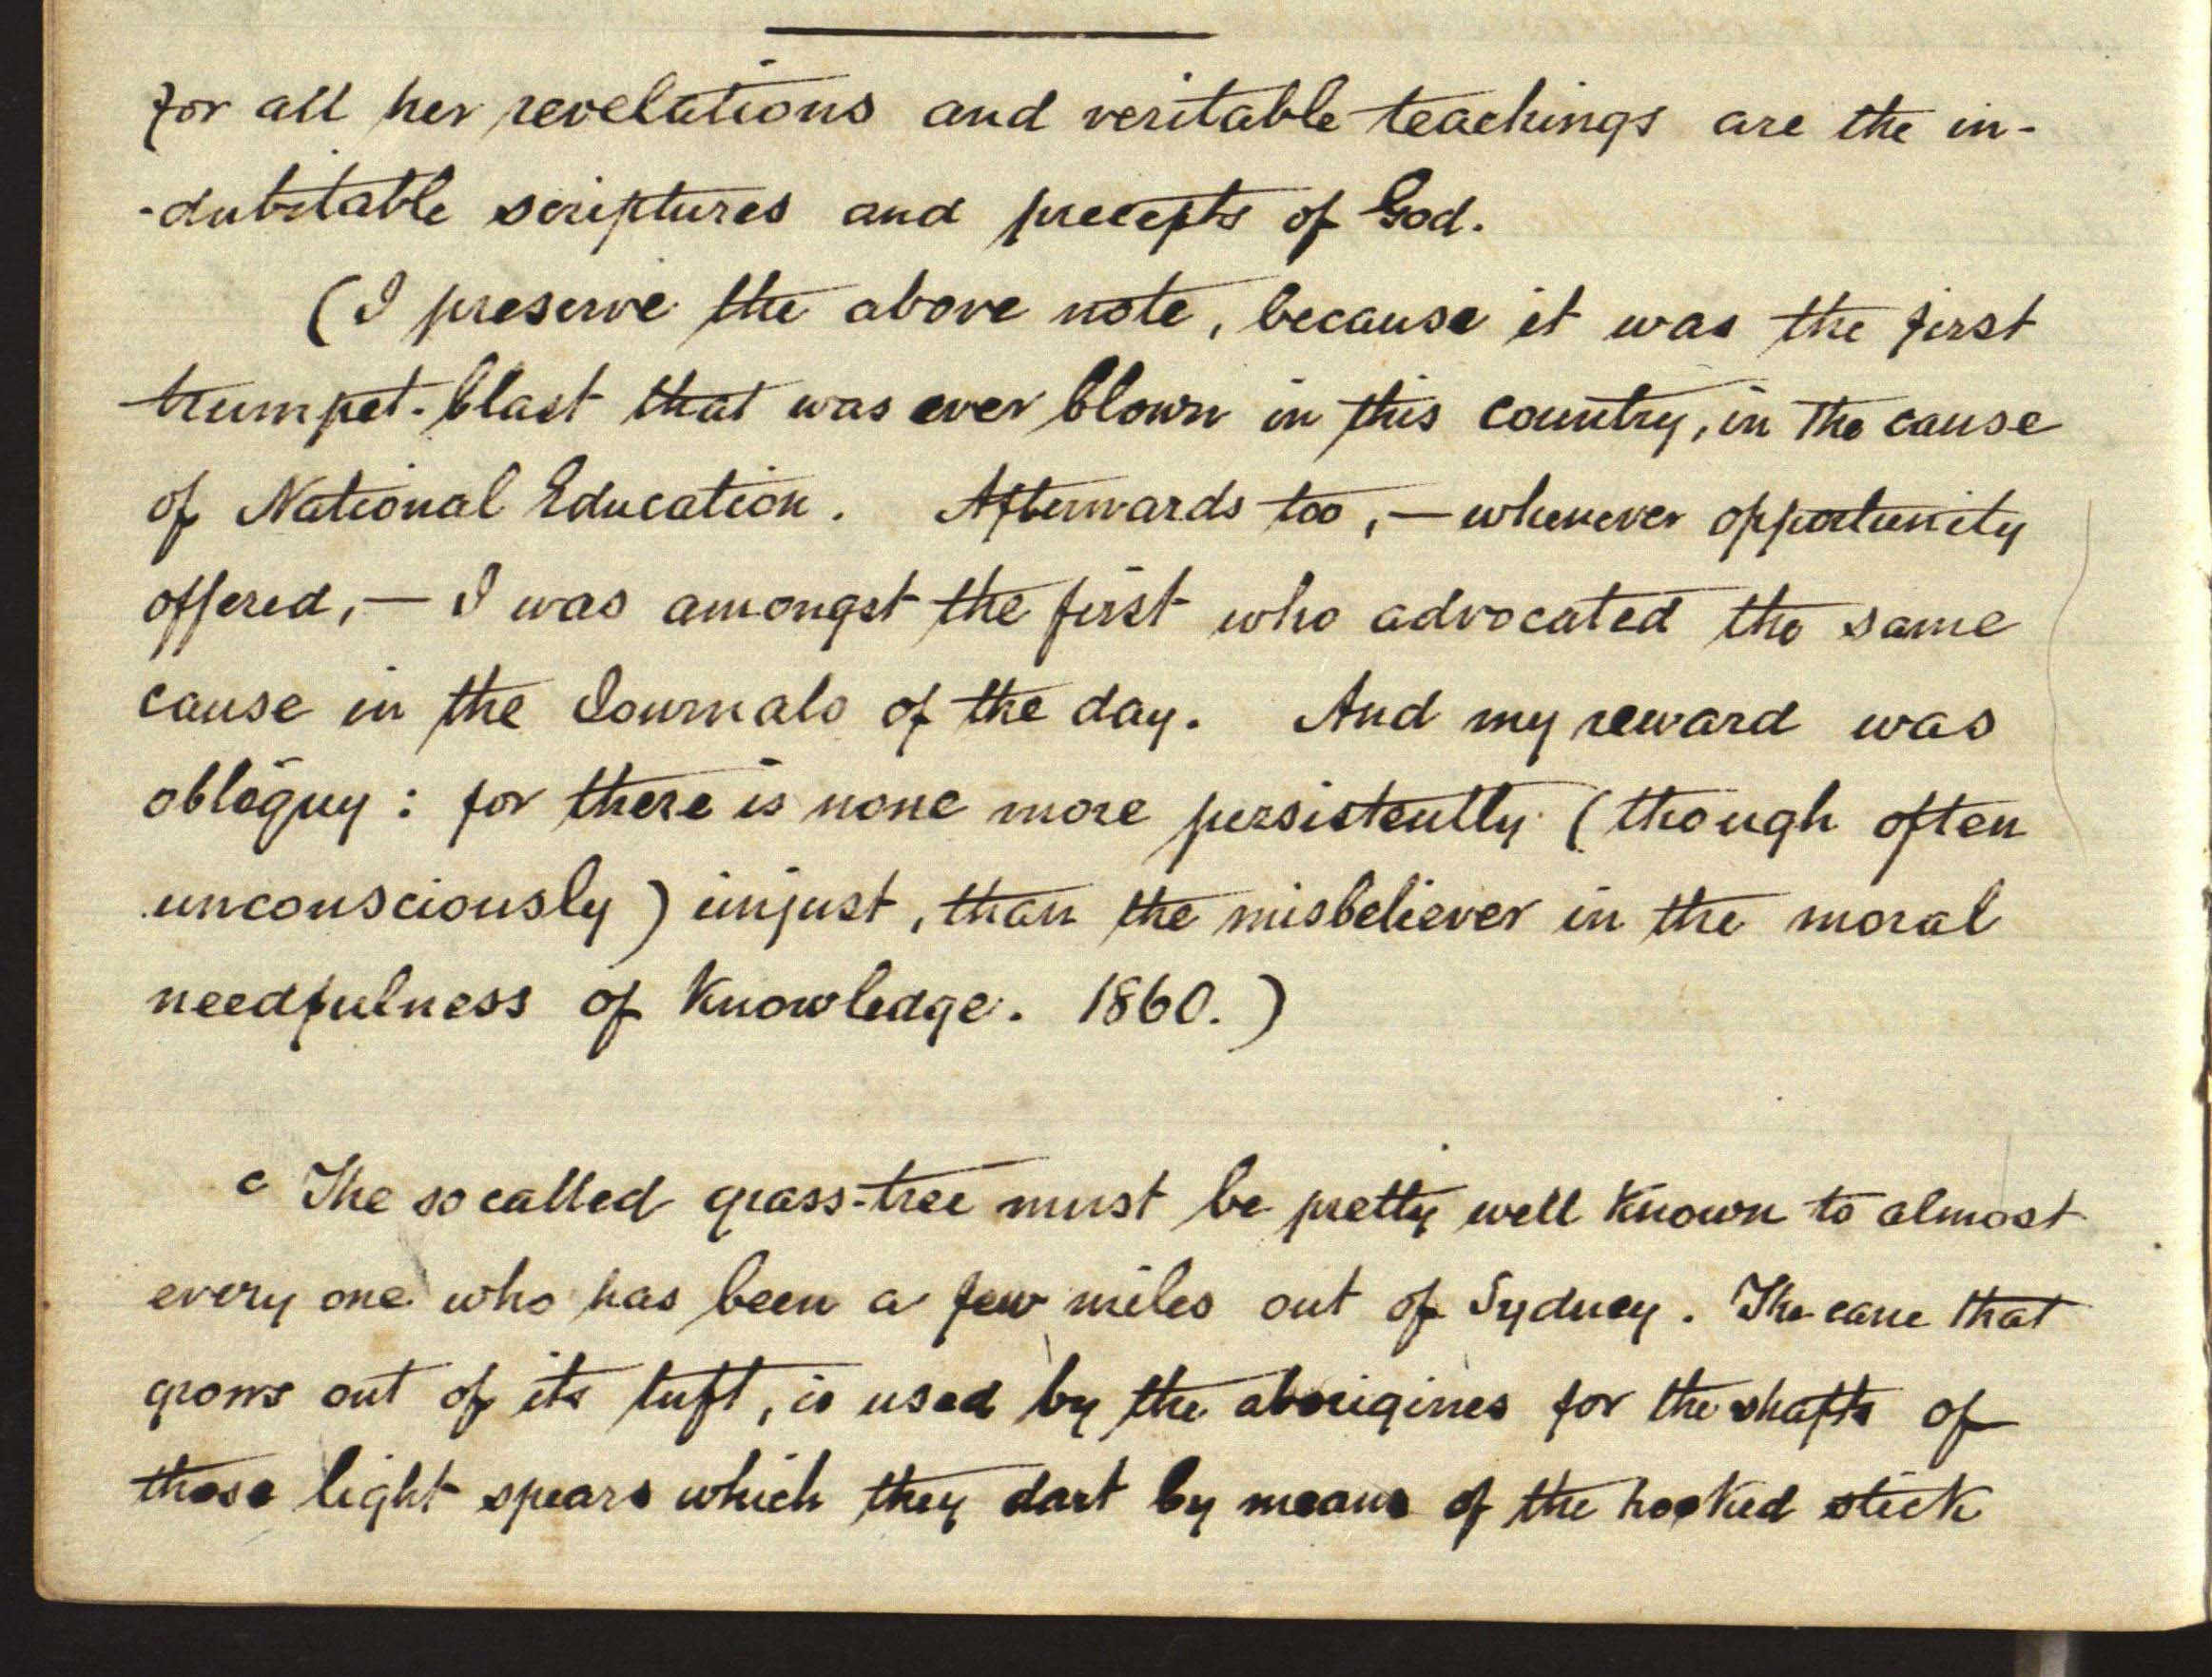 for all her revelations and veritable teachings are the in-
-dubitable scriptures and precepts of God.
(I preserve the above note, because it was the first
trumpet-blast that was ever blown in this country, in the cause
of National Education. Afterwards too, — whenever opportunity
offered, — I was amongst the first who advocated the same
cause in the Journals of the day. And my reward was
obloquy: for there is none more persistently (though often
unconsciously) unjust, than the misbeliever in the moral
needfulness of Knowledge. 1860.)
c The so called grass-tree must be pretty well known to almost
every one who has been a few miles out of Sydney. The cane that
grows out of its tuft, is used by the aborigines for the shafts of
those light spears which they dart by means of the hooked stick